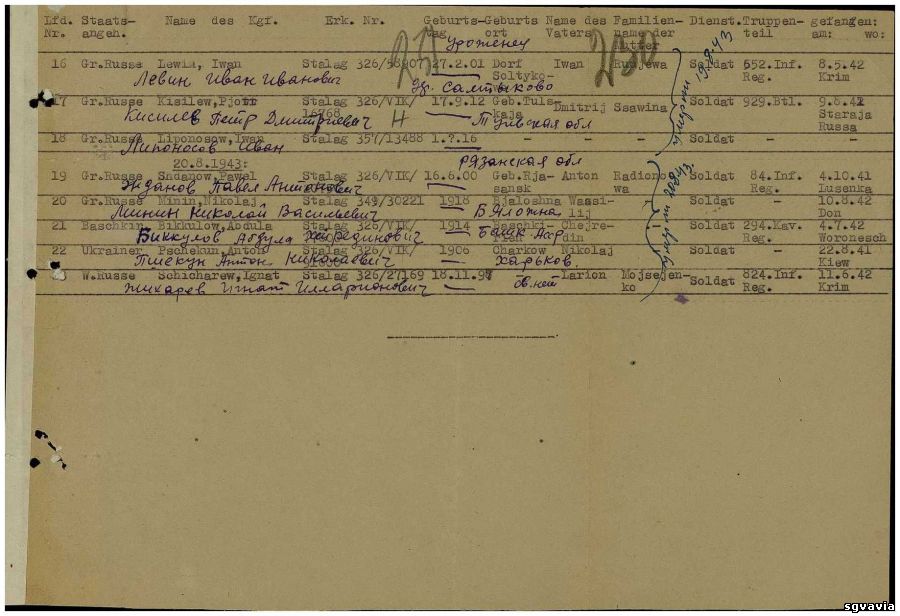 Lfd. Staats- Name des Kgf. Erk. Nr. Geburts- Geburts Name des Familien- Dienst. Truppen- gefangen:
Nr. angeh. tag ort Vaters name der teil am: wo:
Mutter
уроженец
16 Gr.Russe Lewin, Iwan Stalag 326/ 27.2.01 Dorf Iwan Soldat 652.Inf. 8.5.42
Soltyko- Reg. Krim
Левин Иван Иванович Салтыково
17 Gr.Russe Kisilew,Pjotr Stalag 326/VIK/ 17.9.12 Geb.Tuls- Dmitrij Ssawina Soldat 929.Btl. 9.8.42
kaja Staraja
Кисилев Петр Дмитриевич Тульская обл Russa
18 Gr.Russe Liponosow,Iwan Stalag 357/13488 1.?.16 - Soldat -
Липоносов Иван
20.8.1943: Рязанская обл
19 Gr.Russe Sndanow,Pawel Stalag 326/VIK/ 16.6.00 Geb.Rja- Anton Radiono- Soldat 84.Inf. 4.10.41
sansk wa Reg. Lusenka
Жданов Павел Антонович
20 Gr.Russe Minin,Nikolaj Stalag 349/30221 1918 Bjaloshna Wassi- Soldat - 10.8.42
lij Don
Минин Николай Васильевич Бяложна
21 Baschkir Bikkulow,Abdula Stalag 326/VIK/ 1914 Baschki- Chejre- Soldat 294.Kav. 4.7.42
din Reg. Woronesch
Биккулов Абдула
22 Ukrainer Pschekun,Anton Stalag 326/VIK/ 1906 Charkow Nikolaj Soldat - 22.8.41
Kiew
Пшекун Антон Николаевич Харьков
23 W.Russe Schicharew,Ignat Stalag 326/27169 18.11.97 - Larion Mojsejen- Soldat 824.Inf. 11.6.42
ko Reg. Krim
Жихарев Игнат Илларионович св. нет
sgvavia